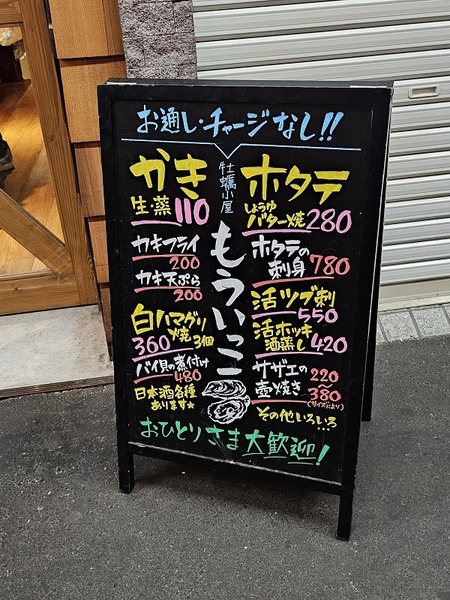 お通し・チャージなし!!
かき
生・蒸 110
カキフライ
200
カキ天ぷら
200
白ハマグリ
焼 3個
360
バイ貝の煮付け
480
日本酒各種
あります★
牡蠣小屋
もういっこ
ホタテ
しょうゆ
バター焼 280
ホタテの
刺身 780
活ツブ刺
550
活ホッキ
酒蒸し 420
サザエの
壺焼き
220
〜
380
(サイズにより)
その他いろいろ
おひとりさま大歓迎!